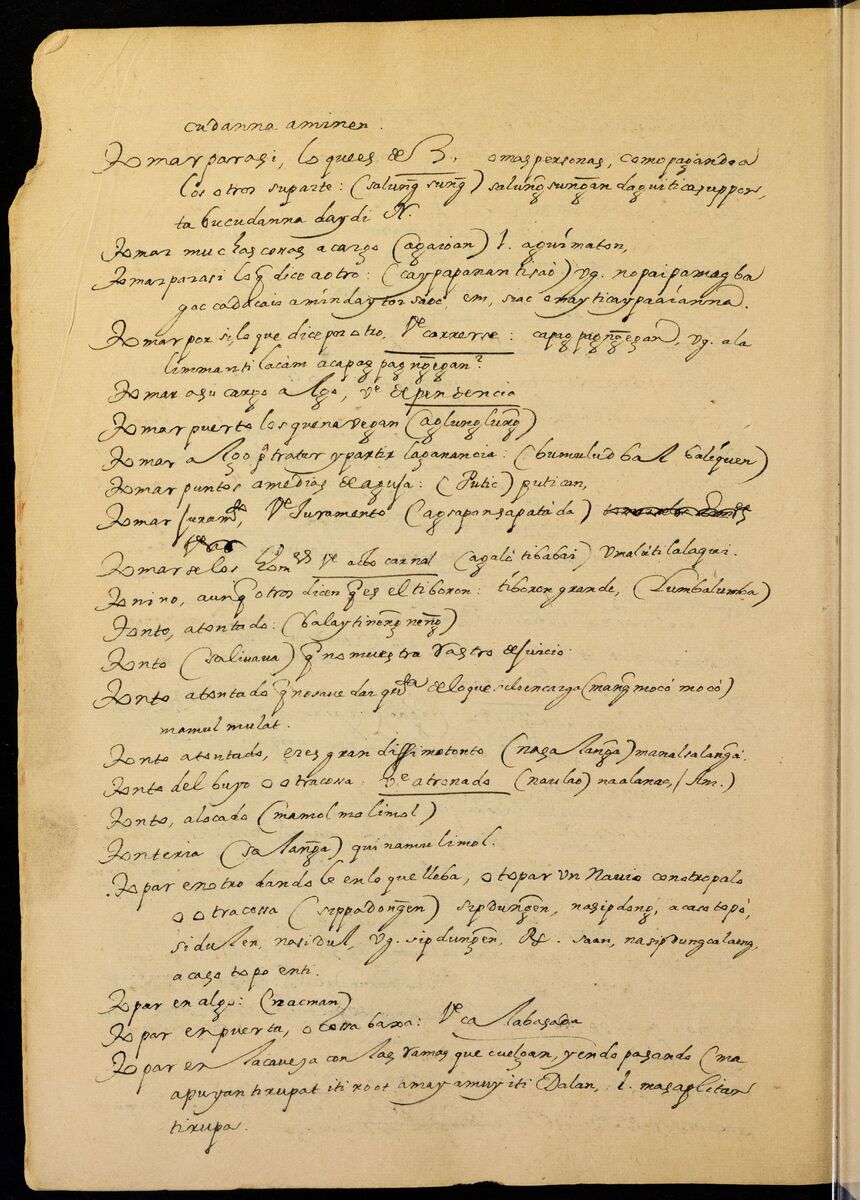 cudanna aminen.
Tomar parasi, lo que es de 3. o mas personas, como pagando a
los otros suparte: (salung̃ sung̃) salung̃sung̃an daguiti casuppor,
ta bucudanna daydi N.
Tomar muchas cossas a cargo (agaioan) l. aguímaton,
Tomar parasi lo q̃ dice a otro: (caypapanan tisaò) vg. no paipamagba
gac cadacaio amín daytoy saoc em, siac
Tomar por si, lo que dice por otro, Vᵉ carrerse: capag pagng̃egan, vg. ala
limmanti lacám acapag pagng̃egan?
Tomar a su cargo algo, vᵉ dependencia
Tomar puerto los que navegan (aglunglung̃)
Tomar algo p̃ tratar y partir la ganancia: (bumulud bal baléquen)
Tomar puntos a medias de aguja: (Putic) putican,
Tomar juramᵗᵒ, Vᵉ Juramento (agsaponsapatàda)
Tomarse los hom ᵉˢ vᵉ acto carnal (agalò tibabai) vmalúti lalaqui.
Tonino, aunq̃ otros dicen q̃ es el tiboron: tíboron grande, (Lumbàlumba)
Tonto, atontado: (balaytinong̃ neng̃)
Tonto (salivava) q̃ no muestra rastro de juicio.
Tonto atontado q̃ no save dar qᵗᵃ de lo que se lo encarga (mang̃mocó mocó)
mamul mulat.
Tonto atontado, eres grandissimo tonto (nasalang̃a) manalsalang̃a.
Tonto del buyo o otra cossa: Vᵉ atronado (naulao) naalanac, (Am.)
Tonto, alocado (mamol mo limol)
Tonteria (salang̃a) quinamulimol.
Topar en otro dandole en lo que lleba, o topar un Navio con otro palo
o otra cossa (sippadong̃en) sipdung̃en, nasipdong̃, acaso topó,
sidulen, nasidul, vg. sipdung̃en, R. saan, nasipdung calaeng,
acaso topo enti.
Topar en algo: (nacman)
Topar en puerta, o cossa baxa: Vᵉ calabasada
Topar en la caveza con las ramas que cuelgan, yendo pasando (ma
apuyan tirupat iti root amay amuy iti Dalan, l. masaplitan
tirupa.